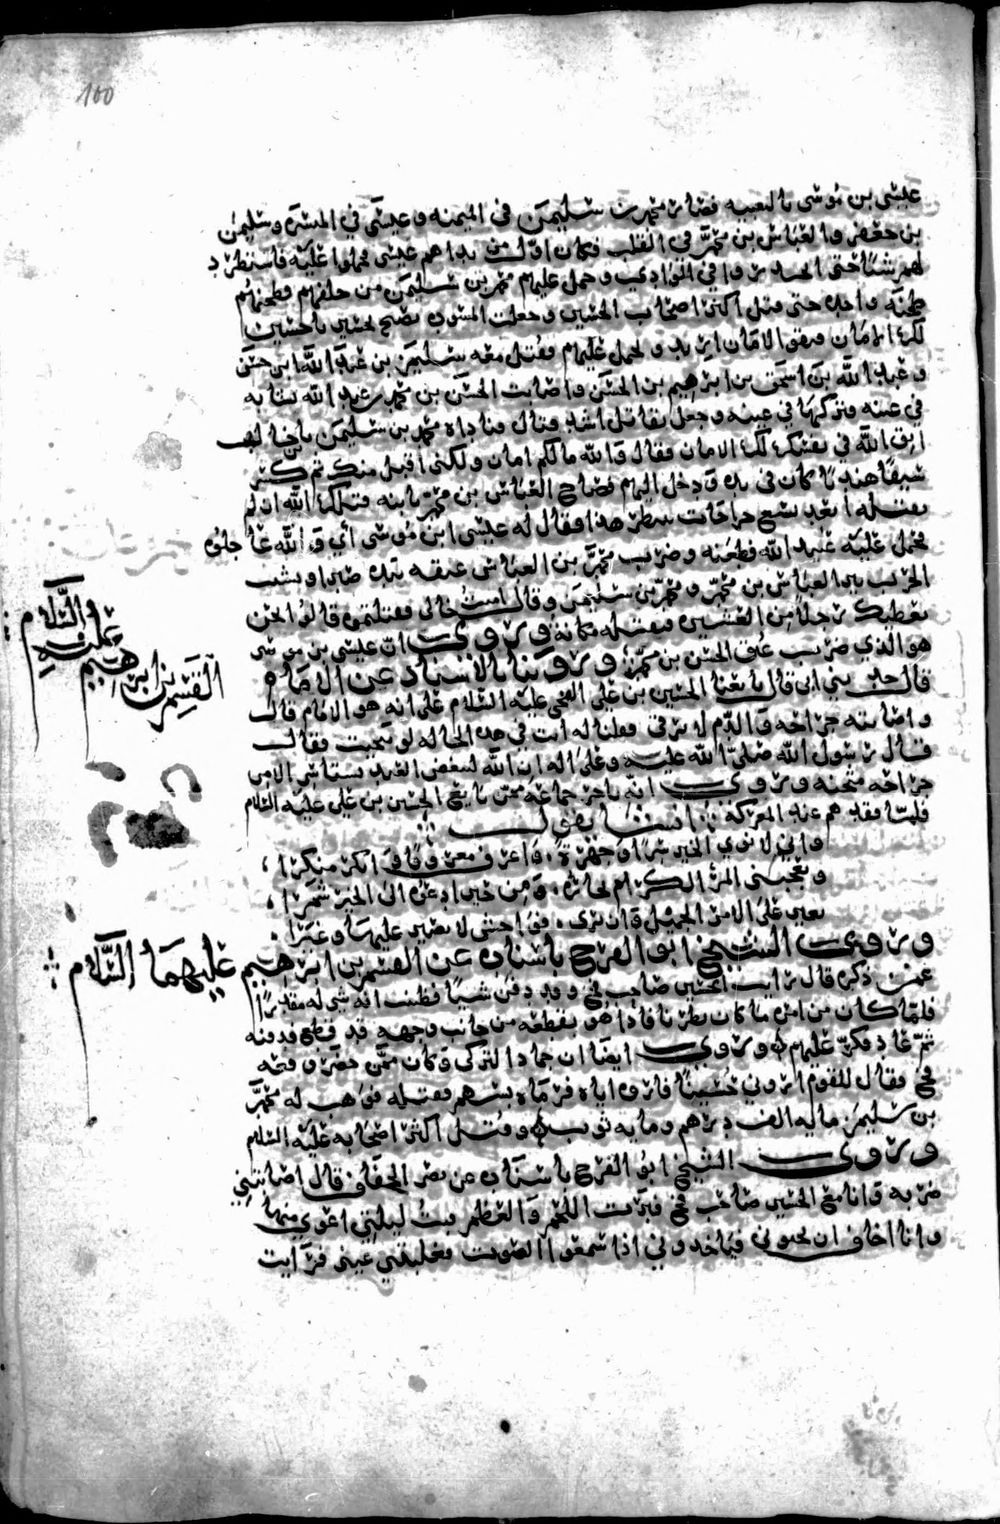 100
عيسى بن موسى بالتعبيه فصار محمد بن سليمن في الميمنه وعيسى في الميسره وسليمن
بن جعفر والعباس بن محمد في القلب فكان اول من بداهم عيسى فحملوا عليه فاستطرد
لهم شيئا حتى انحدروا في الوادي وحمل عليهم محمد بن سليمن من خلفهم فطحنهم
طحنه واحده حتى قتل اكثر اصحاب الحسين وجعلت المسوده تصيح بحسين يا حسين
لك الامان فيقول الامان اريد ويحمل عليهم فقتل معه سليمن بن عبد الله ابن حسن
وعبد الله بن اسحق بن ابرهيم بن الحسن واصابت الحسن بن محمد بن عبد الله نشابه
في عينه وتركها في عينه وجعل يقاتل اشد قتال فناداه محمد بن سليمن يا خال
اتق الله في نفسك لك الامان فقال والله مالكم امان ولكني اقبل منكم ثم كسر
سيفا هنديا كان في يده ودخل اليهم فصاح العباس بن محمد بابنه قتلك الله ان لم
تقتله ابعد تسع جراحات تنتظر هذا فقال له عيسى ابن موسى اي والله عاجلوه
فحمل عليه عبيد الله فطعنه وضرب محمد بن العباس عنقه بيده صبرا ونشب
الحرب بين العباس بن محمد ومحمد بن سليمن وقال امنت خالي فقتلتموه قالوا نحن
نعطيك رجلا من العشيره فتقتله مكانه وروي ان عيسى بن موسى
هو الذي ضرب عنق الحسن بن محمد وروينا بالاسناد عن الامام
القسم بن ابرهيم
عليه
والسلام
قال حدثني ابي قال بايعنا الحسين بن علي الفخي عليه السلام على انه هو الامام قال
واصابته جراحه والدم لا يرقى فقلنا له انت في هذه الحاله لو تنحيت فقال
قال رسول الله صلى الله عليه وعلى اله ان الله ليبغض العبد يستاسر الا من
جراحه مثخنه وروي انه تاخر جماعه ممن بايع الحسين بن علي عليه السلام
فلما فقدهم عند المعركه انشا يقول
واني لانوي الخير سرا وجهرة، واعرف معروفا وانكر منكرا،
ويعجبني المرء الكريم نجاره، ومن حين ادعوه الى الخير شمرا،
يعين على الامر الجميل وان يرى، فواحش لا يصبر عليها وغيرا،
وروى الشيخ ابو الفرج باسناده عن القسم بن ابرهيم عليهما السلام
عمن ذكره قال رايت الحسين صاحب فخ وقد دفن شيئا فظننت انه شي له مقدار
فلما كان من امره ما كان نظرنا فاذا هو بقطعه من جانب وجهه قد قطع فدفنه
ثم عاد فكر عليهم وروي ايضا ان حمادا التركي وكان ممن حضر وقعه
فخ فقال للقوم اروني حسينا فاروه اياه فرماه بسهم فقتله فوهب له محمد
بن سليمن مايه الف درهم ومايه ثوب وقتل اكثر اصحابه عليه السلام
وروى الشيخ ابو الفرج باسناده عن نصر الخفاف قال اصابتني
ضربه وانا مع الحسين صاحب فخ فبرت اللحم والعظم فبت ليلتي اعوي منها
وانا اخاف ان يجوني فياخذوني اذا سمعوا الصوت فغلبتني عيني فرايت